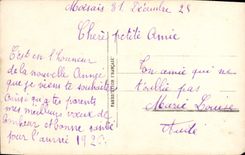 Moesais 31 Décembre 25
Chère petite Amie
C'est en l'honneur
de la nouvelle Année
que je viens te souhaiter
ainsi qu'a tes parents
mes meilleurs vœux de
bonheur et bonne santé
pour l'année 1926
Ton amie qui ne
t'oublie pas
Marie Louise